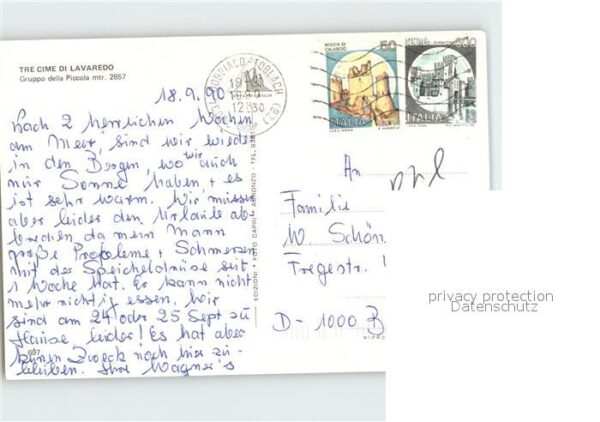 TRE CIME DI LAVAREDO
Gruppo della Piccola mtr. 2857
18.9.90
Nach 2 herrlichen Wochen
am Meer, sind wir wieder
in den Bergen, wo wir auch
nur Sonne haben, + es
ist sehr warm. Wir müssen
aber leider den Urlaub ab-
brechen da mein Mann
große Probleme + Schmerzen
mit der Speicheldrüse seit
1 Woche hat. Er kann nicht
mehr richtig essen. Wir
sind am 24 oder 25 Sept zu
Hause leider! Es hat aber
keinen Zweck noch hier zu-
bleiben. Ihre Wagner's
697
DOBBIACO-TOBLACH
(BZ)
ROCCA DI
CALASCIO
50
ITALIA
ITALIA
EDIZIONI - FOTO
An
Familie
W Schön
Fregestr.
D-1000 B
privacy protection
Datenschutz